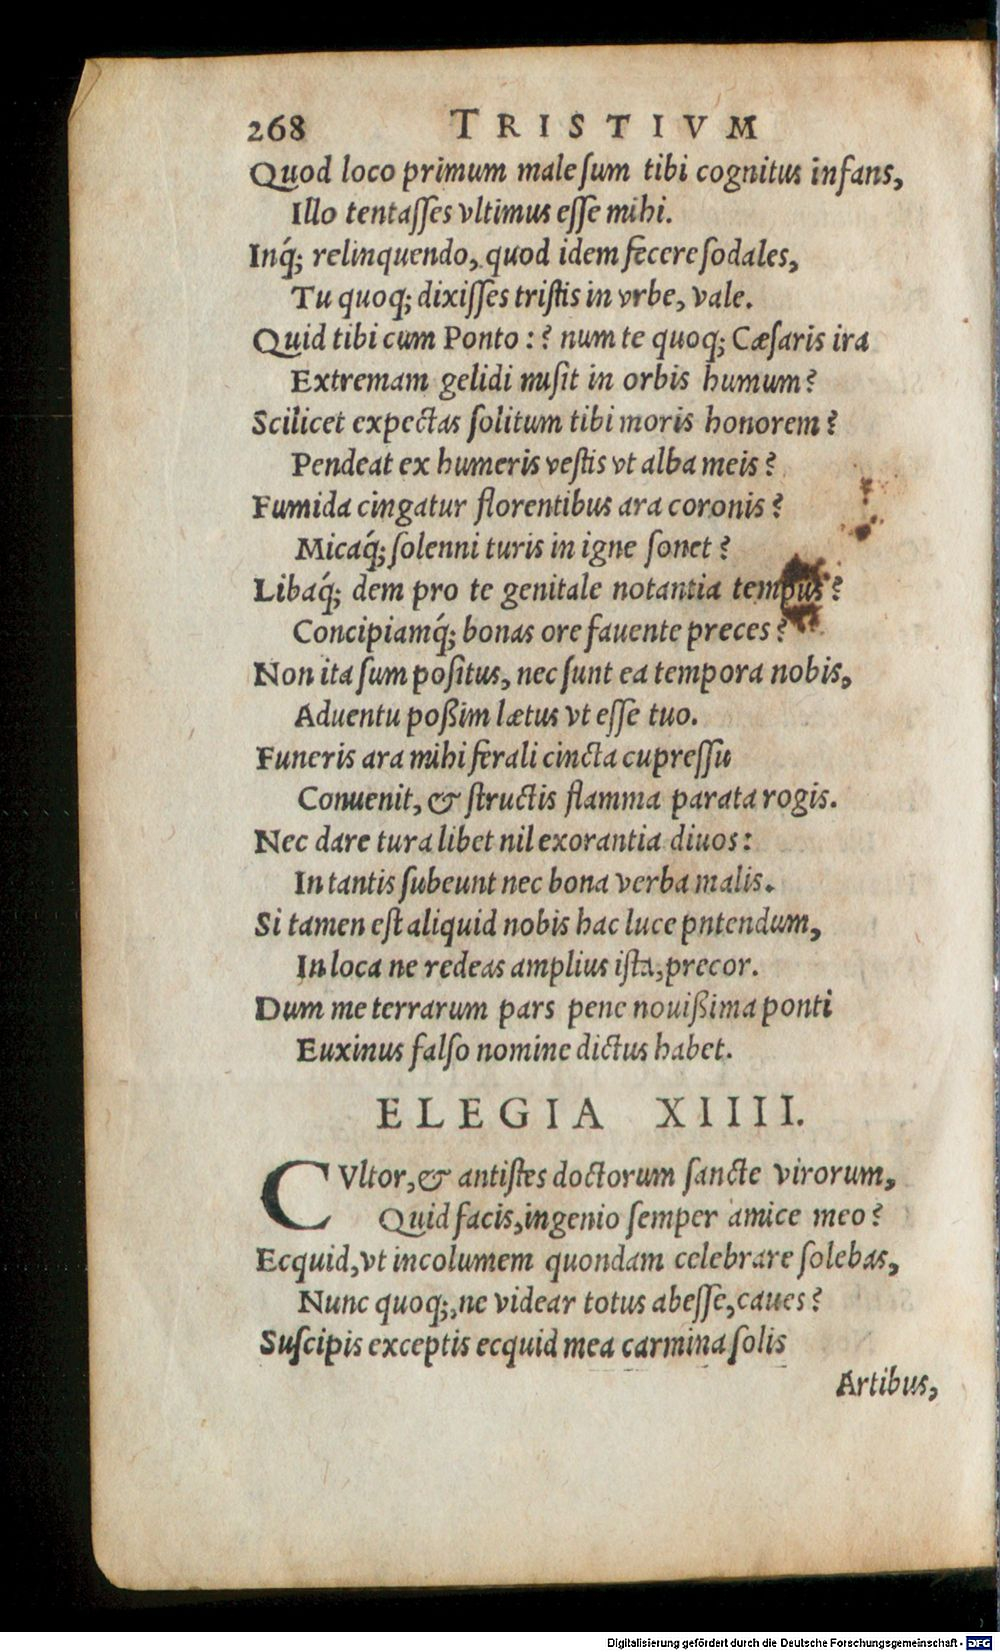 268 TRISTIVM
Quod loco primum male ſum tibi cognitus infans,
Illo tentaſſes vltimus eſſe mihi.
Inq́; relinquendo, quod idem fecere ſodales,
Tu quoq; dixiſſes triſtis in vrbe, vale.
Quid tibi cum Ponto :? num te quoq; Cæſaris ira
Extremam gelidi miſit in orbis humum?
Scilicet expectas ſolitum tibi moris honorem?
Pendeat ex humeris veſtis vt alba meis?
Fumida cingatur florentibus ara coronis?
Micaq́; ſolenni turis in igne ſonet?
Libaq́; dem pro te genitale notantia tempus?
Concipiamq́; bonas ore fauente preces?
Non ita ſum poſitus, nec ſunt ea tempora nobis,
Aduentu poßim lætus vt eſſe tuo.
Funeris ara mihi ferali cincta cupreſſu
Conuenit, & ſtructis flamma parata rogis.
Nec dare tura libet nil exorantia diuos:
In tantis ſubeunt nec bona verba malis.
Si tamen eſt aliquid nobis hac luce pntendum,
In loca ne redeas amplius iſta, precor.
Dum me terrarum pars pene nouißima ponti
Euxinus falſo nomine dictus habet.
ELEGIA XIIII.
CVltor, & antiſtes doctorum ſancte virorum,
Quid facis, ingenio ſemper amice meo?
Ecquid, vt incolumem quondam celebrare ſolebas,
Nunc quoq;, ne videar totus abeſſe, caues?
Suſcipis exceptis ecquid mea carmina ſolis
Artibus,
Digitalisierung gefördert durch die Deutsche Forschungsgemeinschaft - DFG